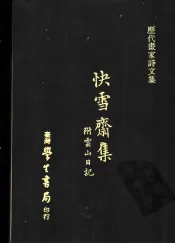 歷代畫家詩文集
快雪齋集
附雲山日記
臺灣學生書局印行